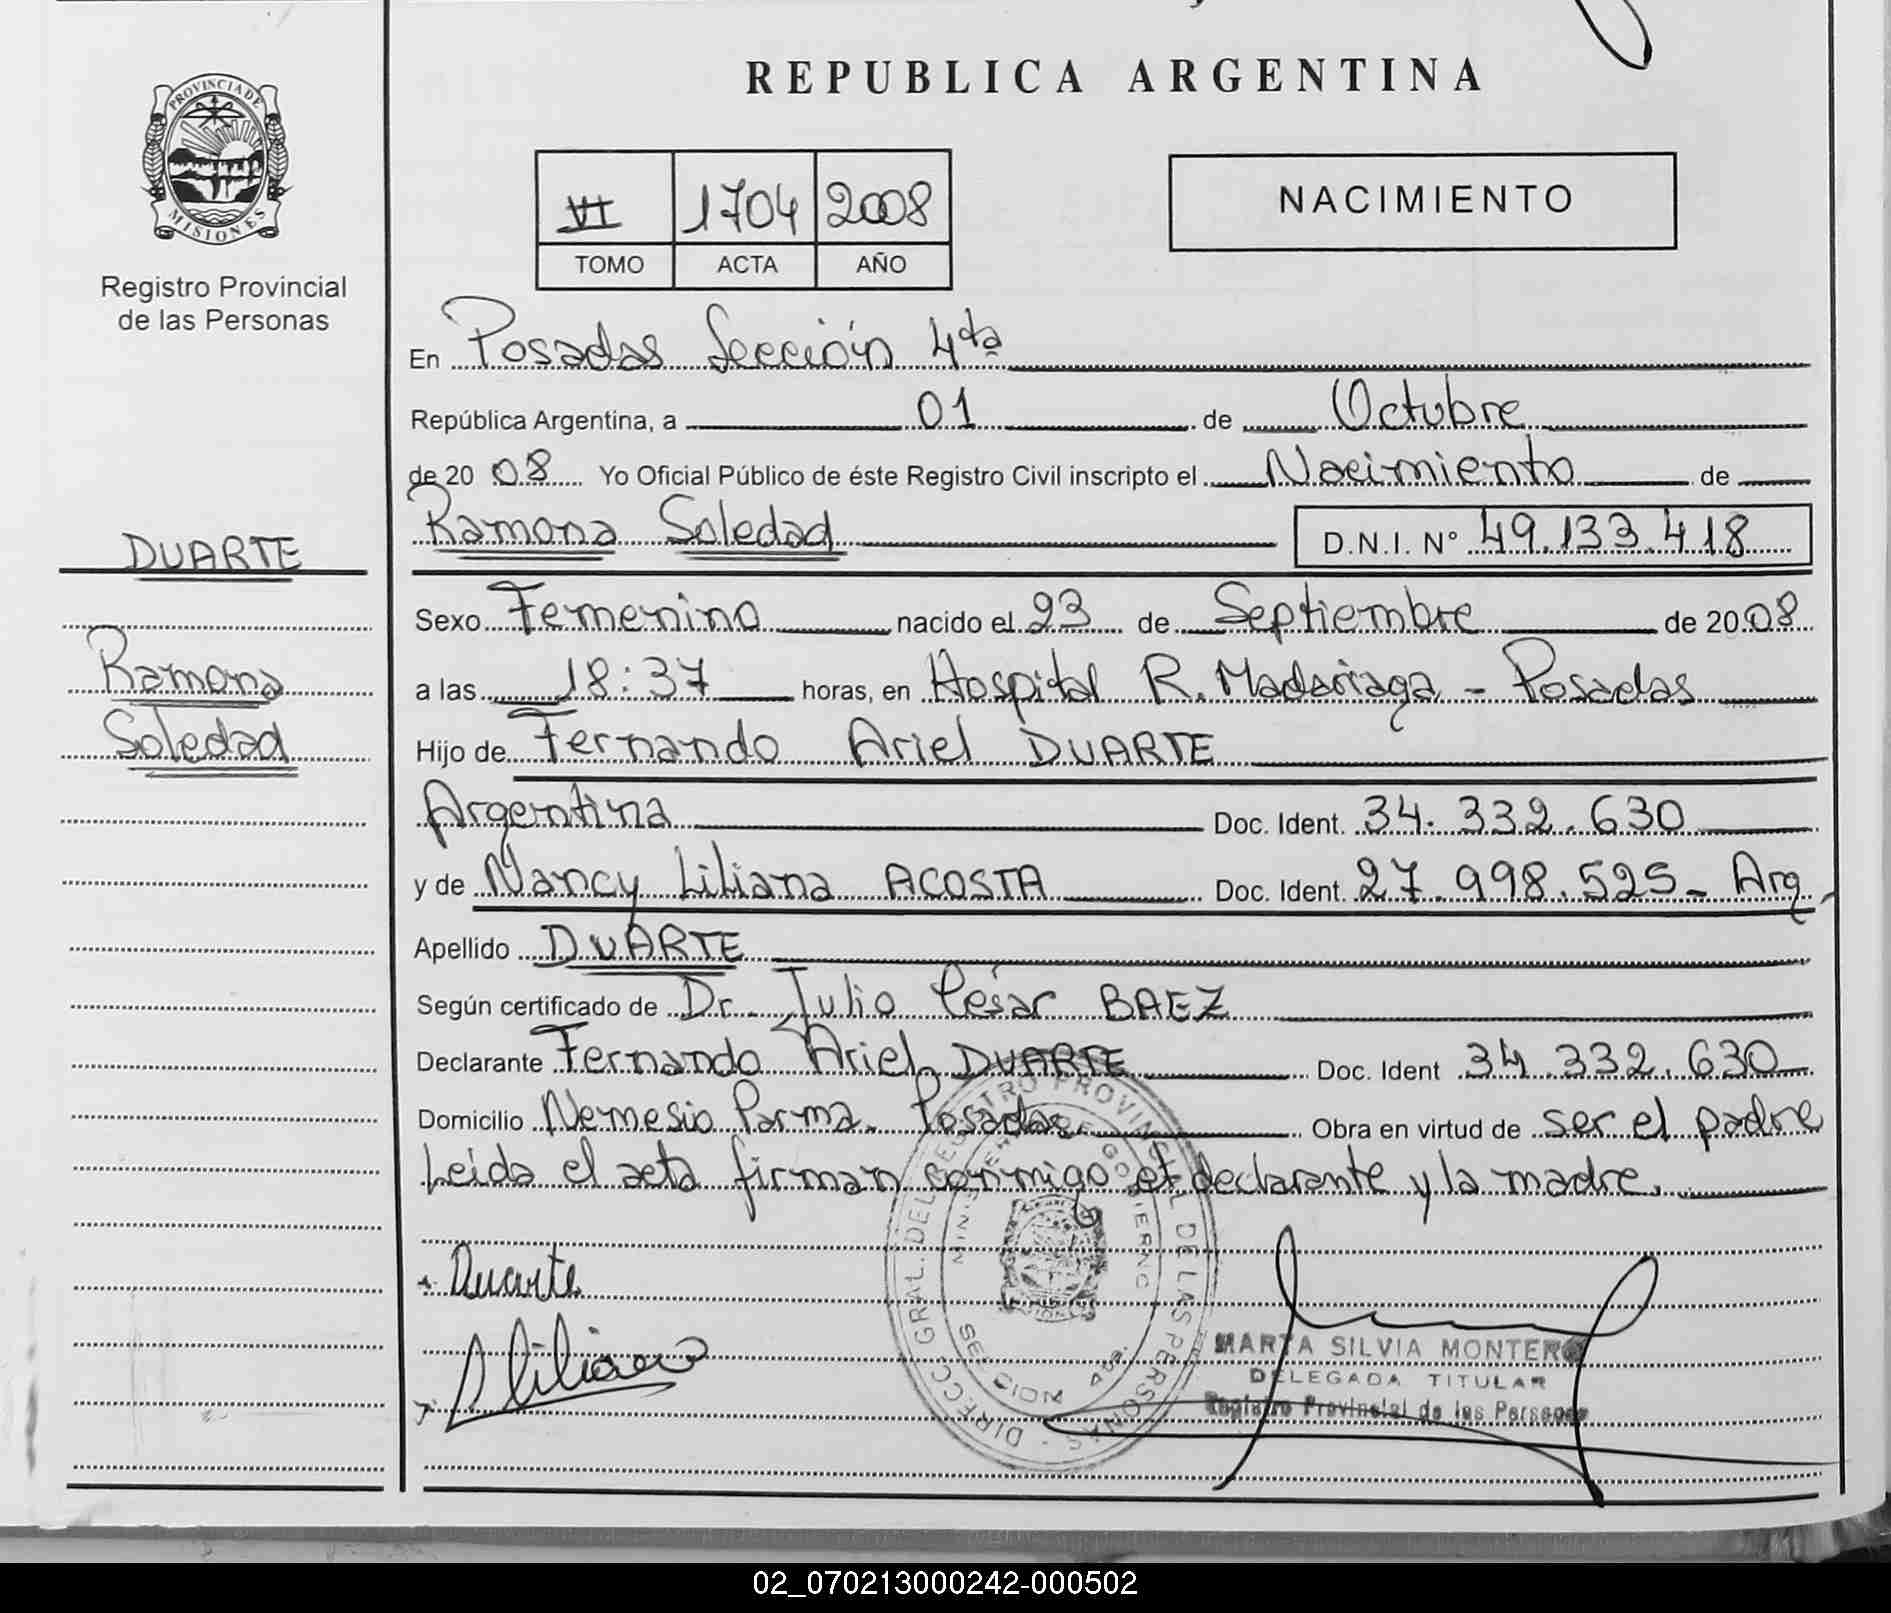 REPUBLICA ARGENTINA
PROVINCIA DE MISIONES
Registro Provincial
de las Personas
VI 1704 2008
TOMO ACTA AÑO
NACIMIENTO
En Posadas Sección 4ta
República Argentina, a 01 de Octubre
de 20 08 Yo Oficial Público de éste Registro Civil inscripto el Nacimiento de
Ramona Soledad D.N.I. N° 49.133.418
DUARTE
Ramona
Soledad
Sexo Femenino nacido el 23 de Septiembre de 20 08
a las 18:37 horas, en Hospital R. Madariaga - Posadas
Hijo de Fernando Ariel DUARTE
Argentina Doc. Ident. 34.332.630
y de Nancy Liliana ACOSTA Doc. Ident. 27.998.525 - Arg.
Apellido DUARTE
Según certificado de Dr. Julio César BAEZ
Declarante Fernando Ariel DUARTE Doc. Ident 34.332.630
Domicilio Nemesio Parma. Posadas. Obra en virtud de ser el padre
Leida el acta firman conmigo el declarante y la madre.
Duarte
Liliana
DIRECC. GRAL. DEL REGISTRO PROVINCIAL DE LAS PERSONAS
MINISTERIO DE GOBIERNO
SECCION 4ta.
MARTA SILVIA MONTERO
DELEGADA TITULAR
Registro Provincial de las Personas
02_070213000242-000502